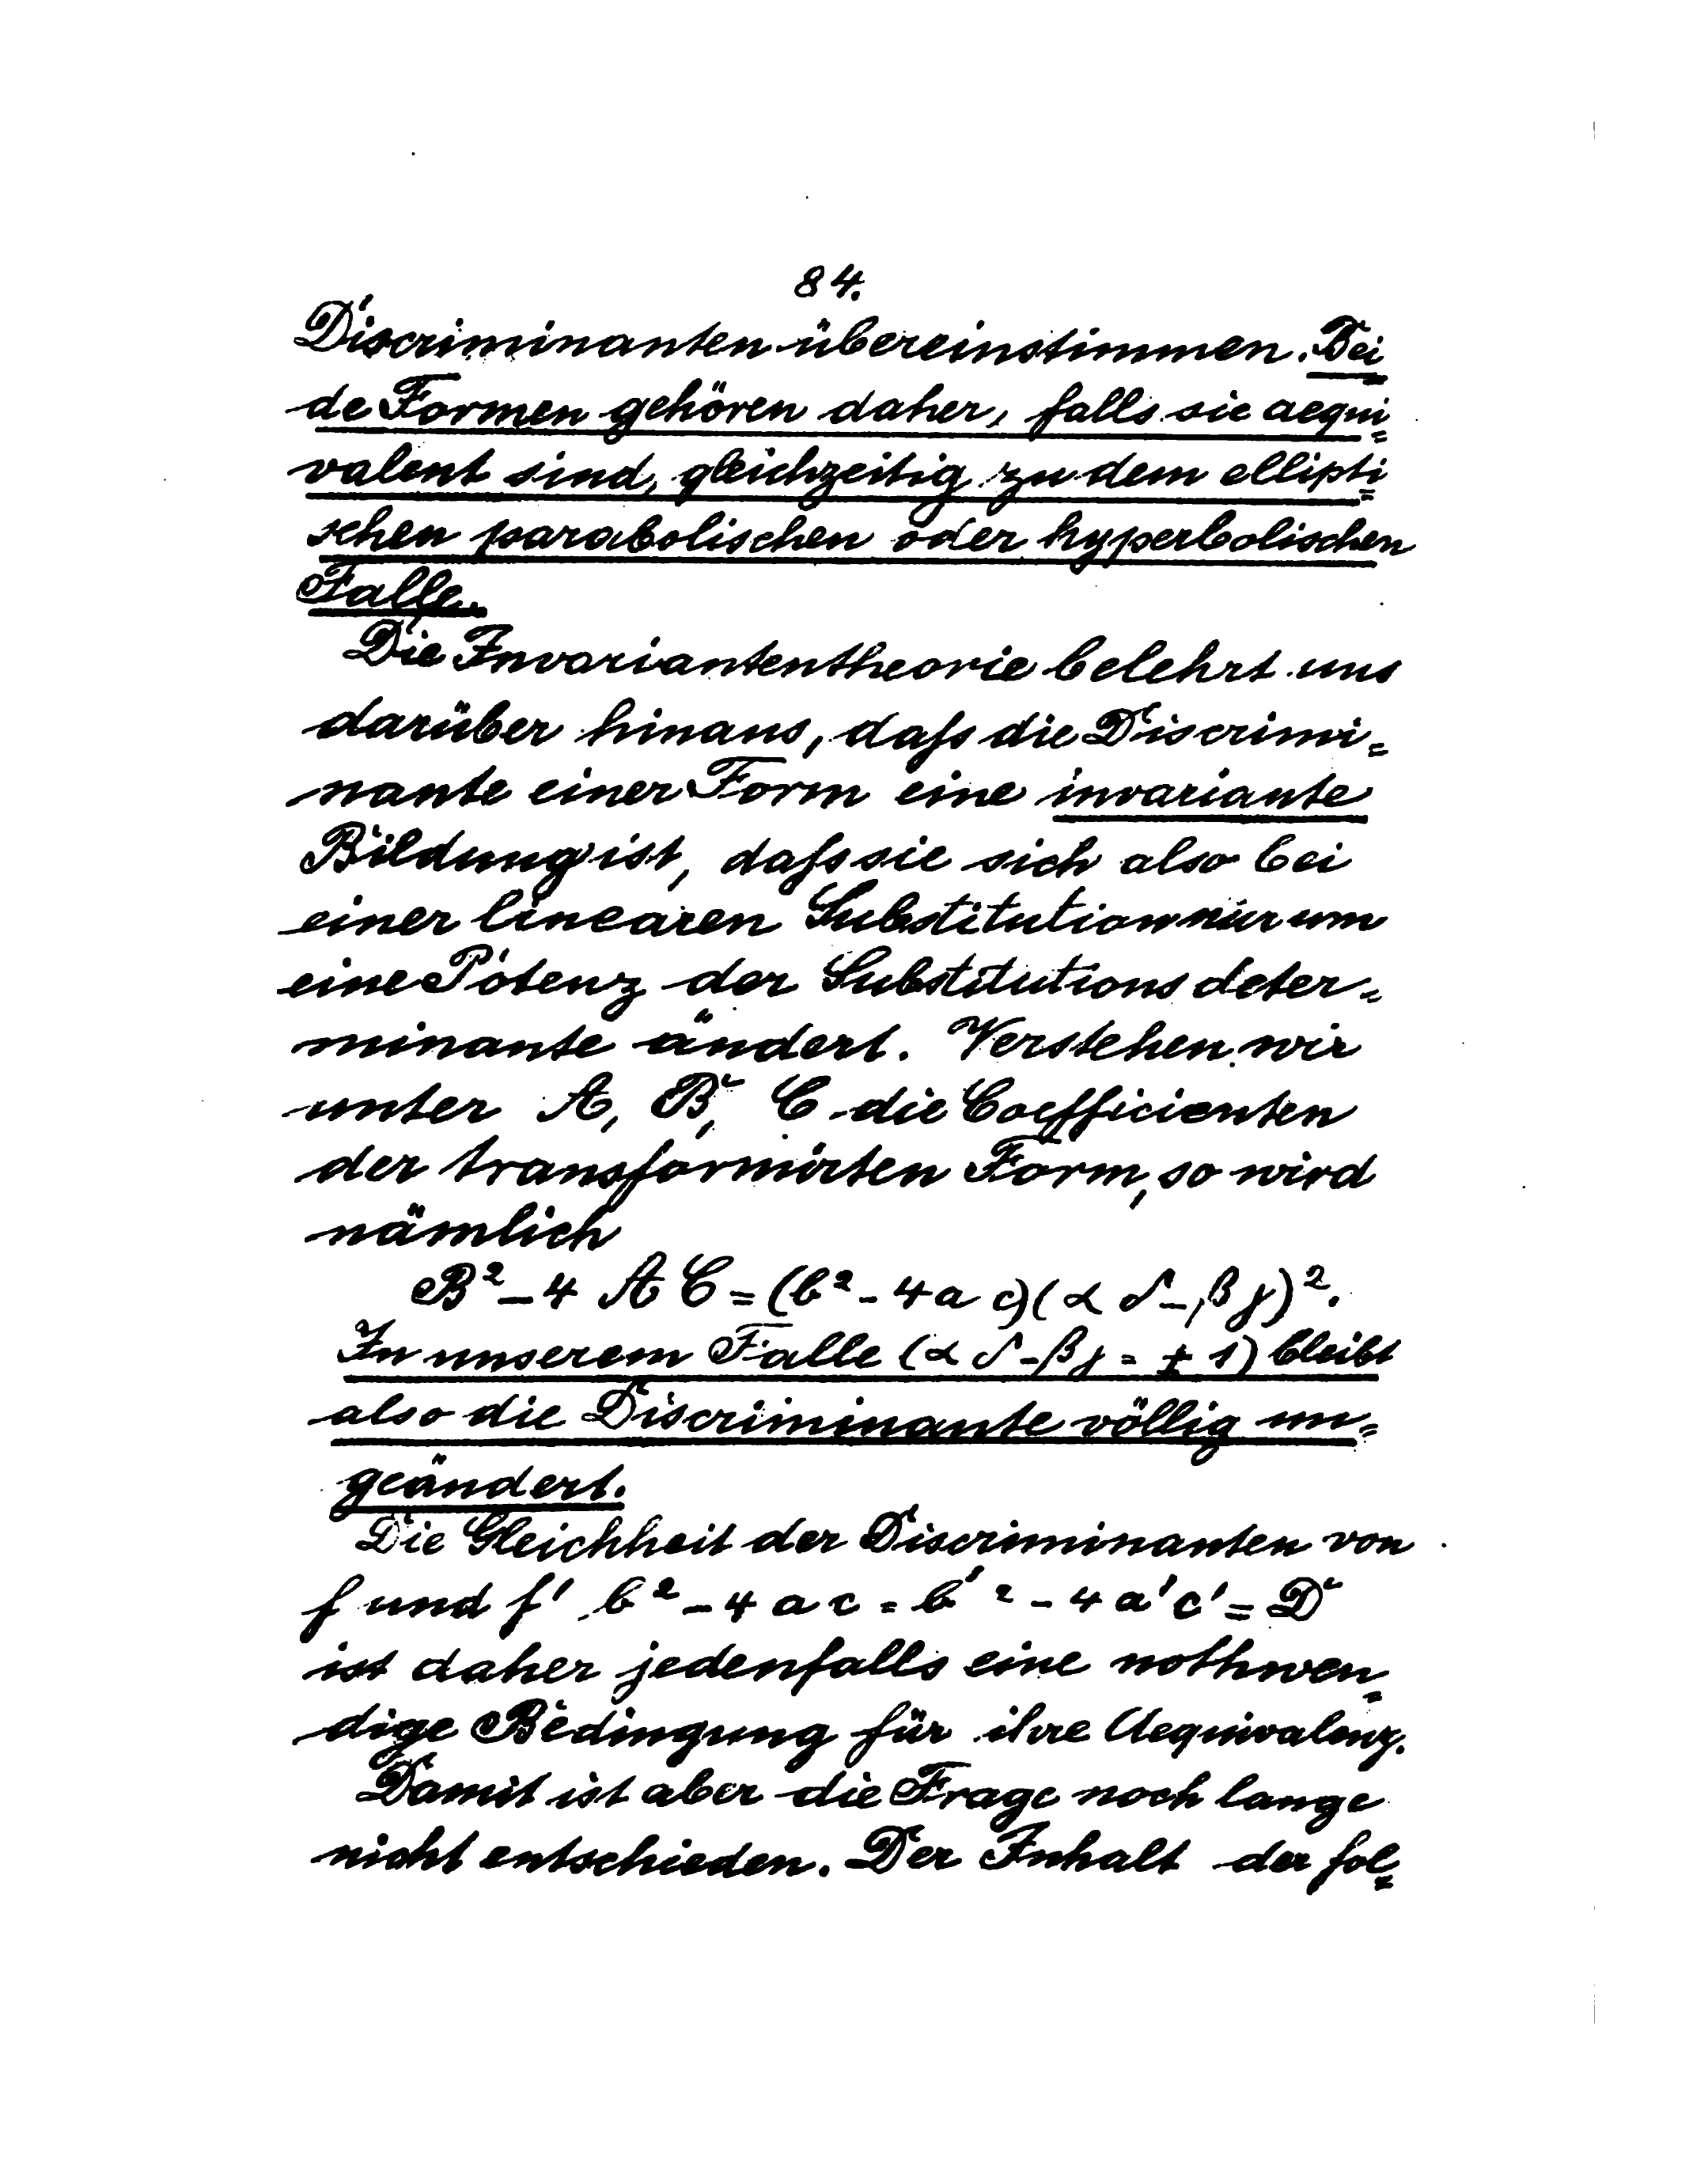 84.
Discriminanten übereinstimmen. Bei=
de Formen gehören daher, falls sie aequi=
valent sind, gleichzeitig zu dem ellipti=
schen parabolischen oder hyperbolischen
Falle.
Die Invariantentheorie belehrt uns
darüber hinaus, daſs die Discrimi=
nante einer Form eine invariante
Bildung ist, daſs sie sich also bei
einer linearen Substitution nur um
eine Potenz der Substitutionsdeter=
minante ändert. Verstehen wir
unter A, B, C die Coefficienten
der transformirten Form, so wird
nämlich
B² - 4 A C = (b² - 4 a c)(α δ - β γ)².
In unserem Falle (α δ - β γ = ± 1) bleibt
also die Discriminante völlig un=
geändert.
Die Gleichheit der Discriminanten von
f und f' b² - 4 a c = b'² - 4 a' c' = D
ist daher jedenfalls eine nothwen=
dige Bedingung für ihre Aequivalenz.
Damit ist aber die Frage noch lange
nicht entschieden. Der Inhalt der fol=